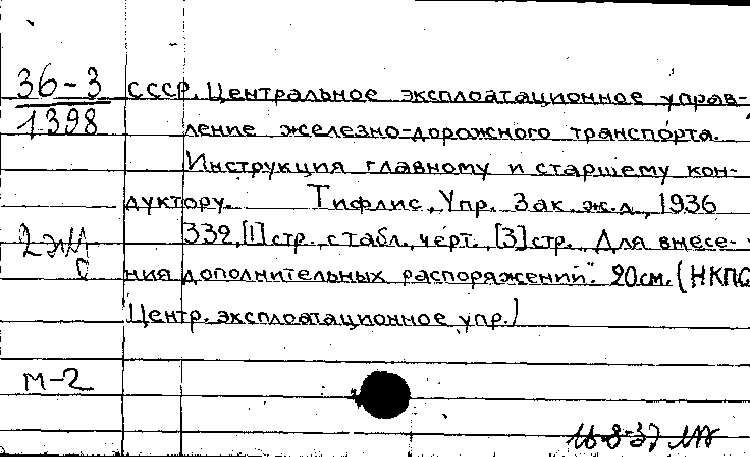 36-3 СССР. Центральное эксплоатационное управ-
1398 ление железно-дорожного транспорта.
Инструкция главному и старшему кон-
дуктору. Тифлис, Упр. Зак. ж.д., 1936
339, [1] стр. с табл., черт. [3] стр. „Для внесе-
ния дополнительных распоряжений". 20 см. (НКПС
Центр. эксплоатационное упр.)
М-2